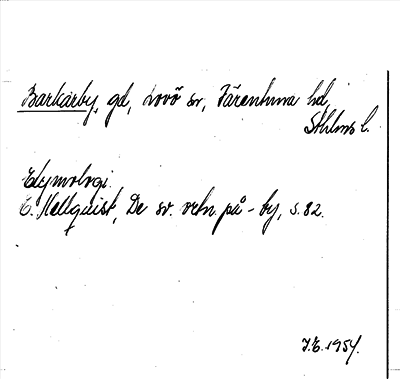 Barkarby, gd, Lovö sn, Färentuna hd,
Sthlms l.
Etymologi.
E. Hellquist, De sv. ortn på -by, s. 82.
J.E. 1954.